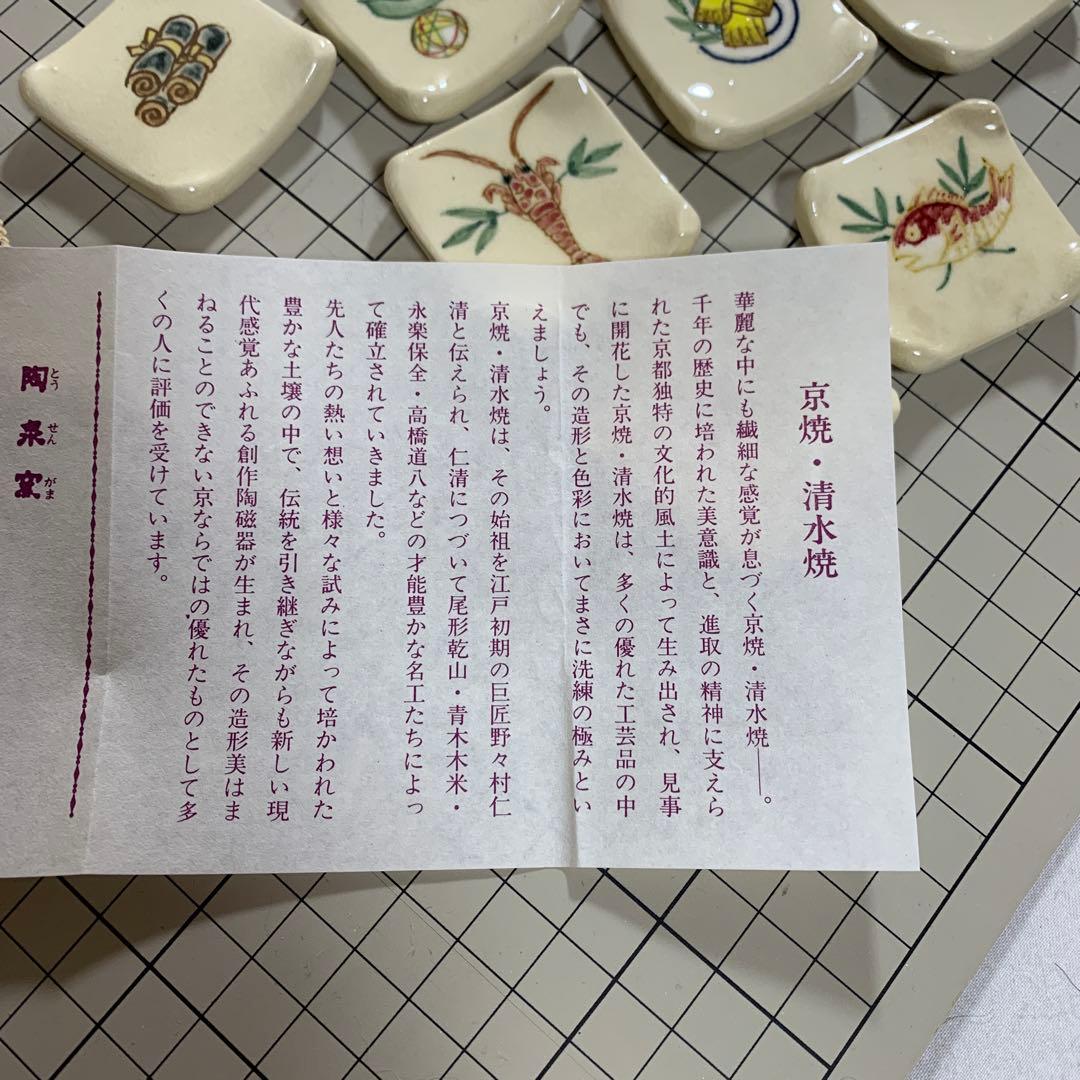 京焼・清水焼
華麗な中にも繊細な感覚が息づく京焼・清水焼――。
千年の歴史に培われた美意識と、進取の精神に支えら
れた京都独特の文化的風土によって生み出され、見事
に開花した京焼・清水焼は、多くの優れた工芸品の中
でも、その造形と色彩においてまさに洗練の極みとい
えましょう。
京焼・清水焼は、その始祖を江戸初期の巨匠野々村仁
清と伝えられ、仁清につづいて尾形乾山・青木木米・
永楽保全・高橋道八などの才能豊かな名工たちによっ
て確立されていきました。
先人たちの熱い想いと様々な試みによって培かわれた
豊かな土壌の中で、伝統を引き継ぎながらも新しい現
代感覚あふれる創作陶磁器が生まれ、その造形美はま
ねることのできない京ならではの優れたものとして多
くの人に評価を受けています。
陶泉窯
とうせんがま